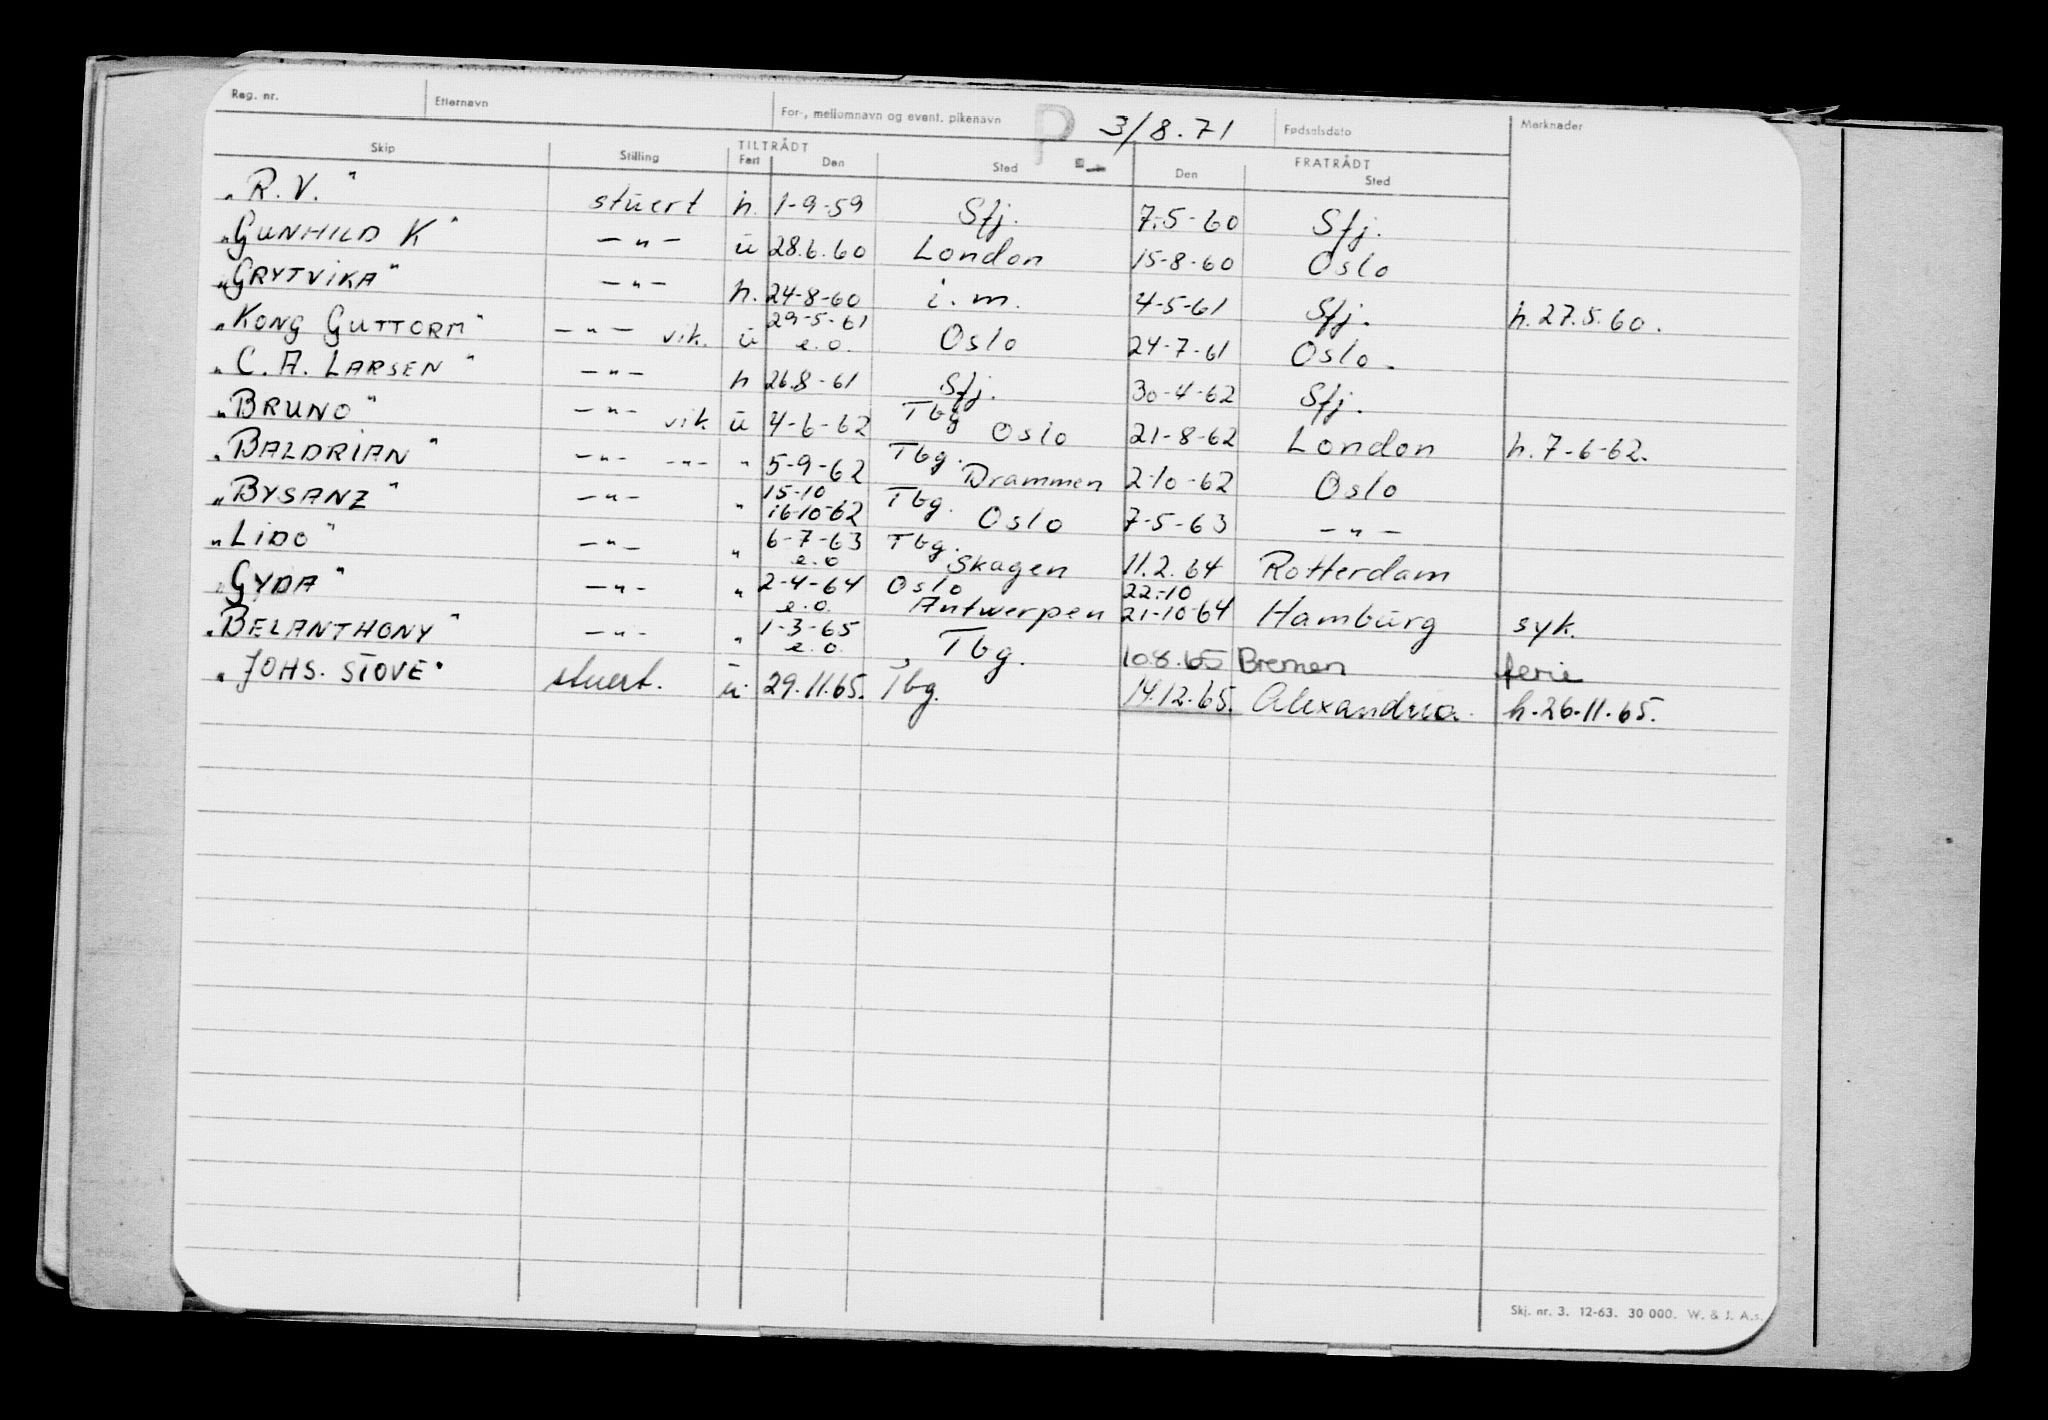 Reg. nr. Etternavn For-, mellomnavn og event. pikenavn P 3/8.71 Fødselsdato Merknader
Skip Stilling TILTRÅDT FRATRÅDT
Fart Den Sted Den Sted
"R.V." stuert h. 1-9-59 Sfj. 7.-5-60 Sfj.
"GUNHILD K" -"- u 28.6.60 London 15-8-60 Oslo
"GRYTVIKA" -"- h. 24-8-60 i.m. 4-5-61 Sfj. h.27.5.60.
"KONG GUTTORM" -"- vik. u 29-5-61 e.o. Oslo 24-7-61 Oslo.
"C.A. LARSEN" -"- h 26.8-61 Sfj. 30-4-62 Sfj.
"BRUNO" -"- vik. u 4-6-62 Tbg Oslo 21-8-62 London h.7-6-62.
"BALDRIAN" -"- -"- " 5-9-62 Tbg. Drammen 2-10-62 Oslo
"BYSANZ" -"- " 15-10 16-10-62 Tbg. Oslo 7-5-63 -"-
"LIDO" -"- " 6-7-63 e.o Tbg. Skagen 11.2.64 Rotterdam
"GYDA" -"- " 2-4-64 e.o. Oslo Antwerpen 22.-10 21-10-64 Hamburg syk.
"BELANTHONY" -"- " 1-3-65 e.o. Tbg. 10.8.65 Bremen ferie
"JOHS. STOVE" stuert. u. 29.11.65. Tbg. 14.12.65. Alexandria. h.26.11.65.
Skj. nr. 3. 12-63. 30 000. W. & J. A.s.